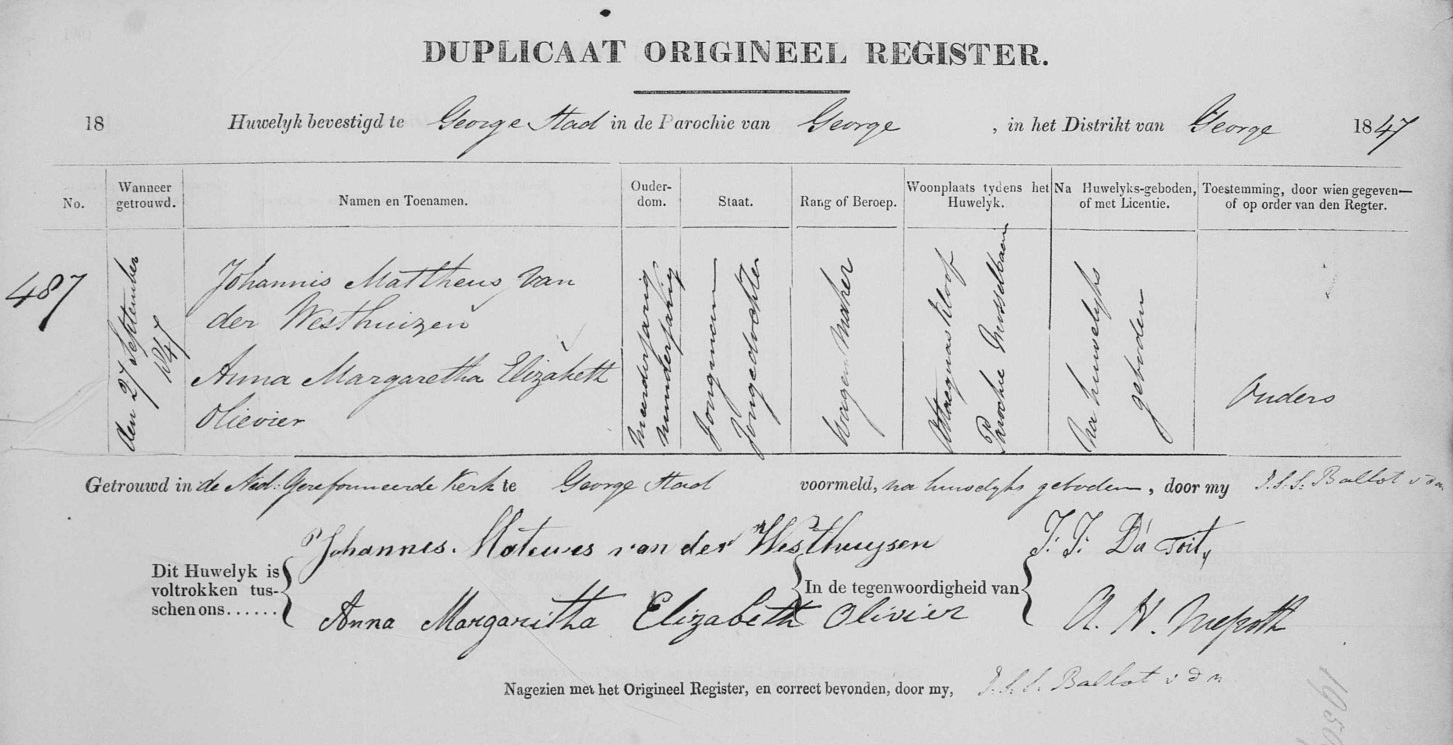 DUPLICAAT ORIGINEEL REGISTER.
18 Huwelyk bevestigd te George Stad in de Parochie van George , in het Distrikt van George 1847
No.
Wanneer getrouwd.
Namen en Toenamen.
Ouder-
dom.
Staat.
Rang of Beroep.
Woonplaats tydens het
Huwelyk.
Na Huwelyks-geboden,
of met Licentie.
Toestemming, door wien gegeven—
of op order van den Regter.
487
den 27 September
1847
Johannis Mattheus van
der Westhuizen
Anna Margaretha Elizabeth
Olievier
meerderjarig
minderjarig
Jongman
Jongedochter
Wagen Maker
Attaquas Kloof
Parochie Mosselbaai
Na huwelyks
geboden
Ouders
Getrouwd in de Ned: Gereformeerde Kerk te George Stad voormeld, na huwelyks geboden , door my J.S.S. Ballot v d m
Dit Huwelyk is
voltrokken tus-
schen ons......
Johannes. Matewes van der Westhuysen
Anna Margaritha Elizabeth Olivier
In de tegenwoordigheid van
J. J. Du Toit
A. H.
Nagezien met het Origineel Register, en correct bevonden, door my, J.S.S. Ballot v d m